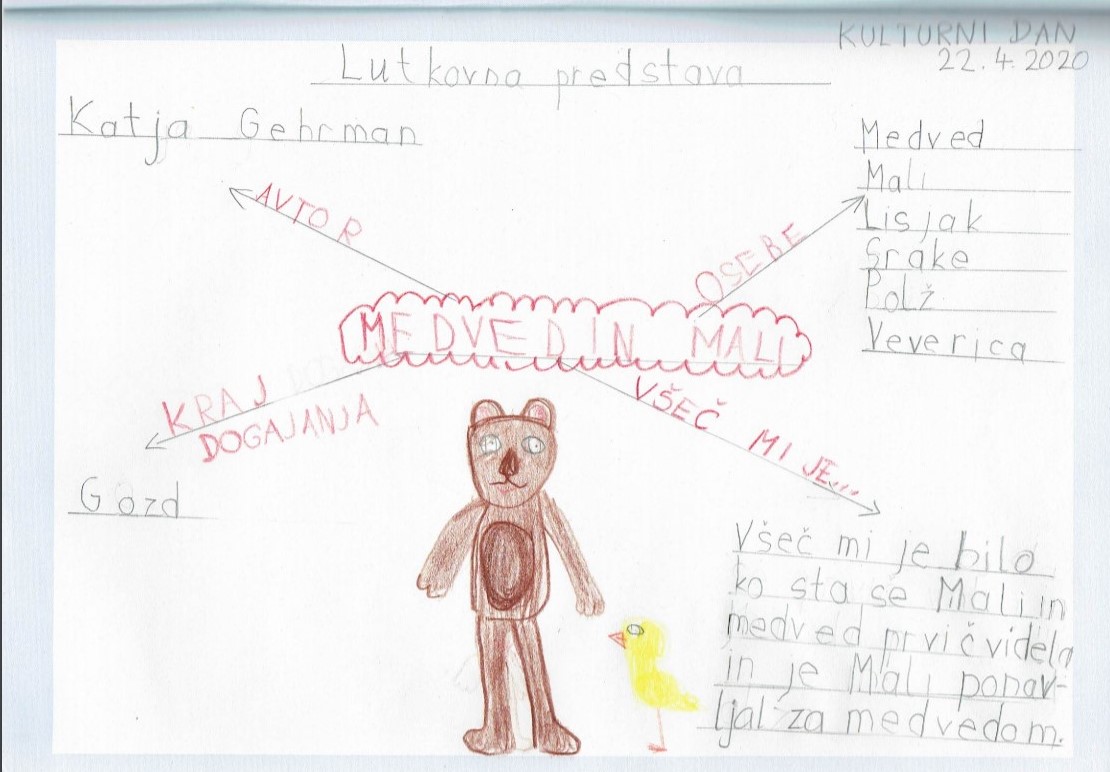 KULTURNI DAN
22.4.2020
Lutkovna predstava
Katja Gehrman
AVTOR
OSEBE
Medved
Mali
Lisjak
Srake
Polž
Veverica
MEDVED IN MALI
KRAJ
DOGAJANJA
Gozd
VŠEČ MI JE...
Všeč mi je bilo
ko sta se Mali in
medved prvič videla
in je Mali ponav-
ljal za medvedom.